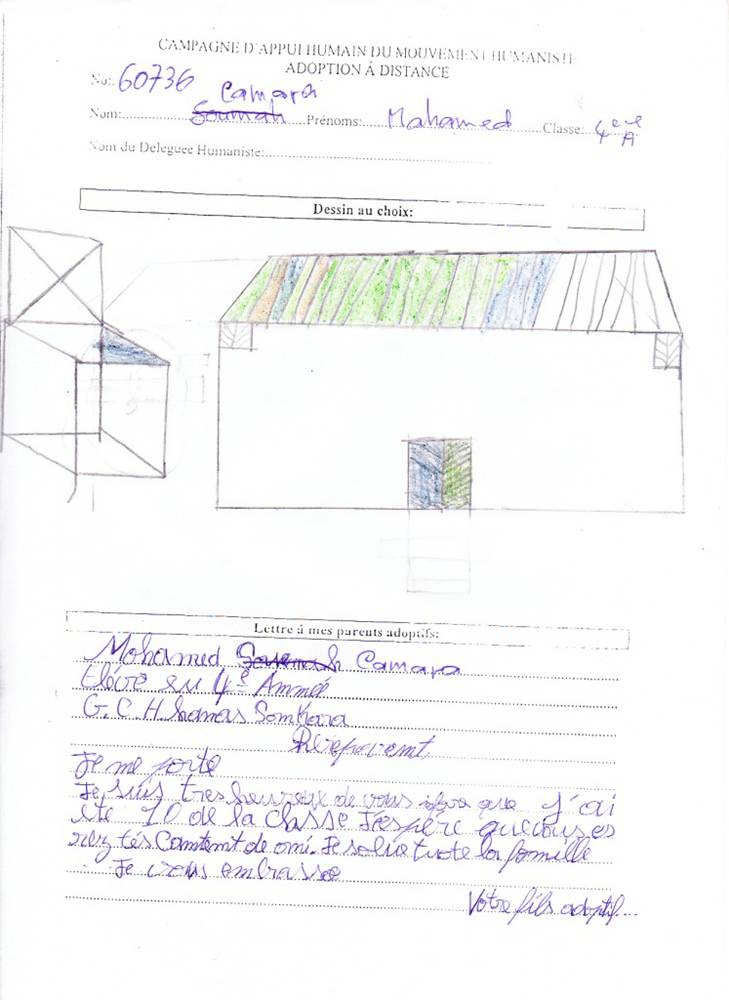 CAMPAGNE D'APPUI HUMAIN DU MOUVEMENT HUMANISTE
ADOPTION Á DISTANCE
No: 60736
Camara
Nom: Soumah Prénoms: Mahamed Classe: 4eme A
Nom du Deleguee Humaniste:
Dessin au choix:
Lettre á mes parents adoptifs:
Mohamed Camara
Elève en 4e Année
G.C.H
Je me porte
Je suis tres heureux de vous que j'ai
ete 10 de la classe J'espère que vous es
rez tés Comtemt de omi. Je salue tuote la famille
Je vous embrasse
Votre fils adoptif...